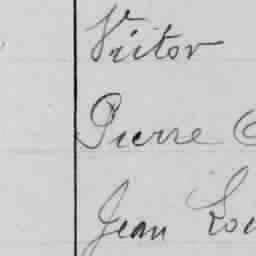 Victor
Pierre
Jean